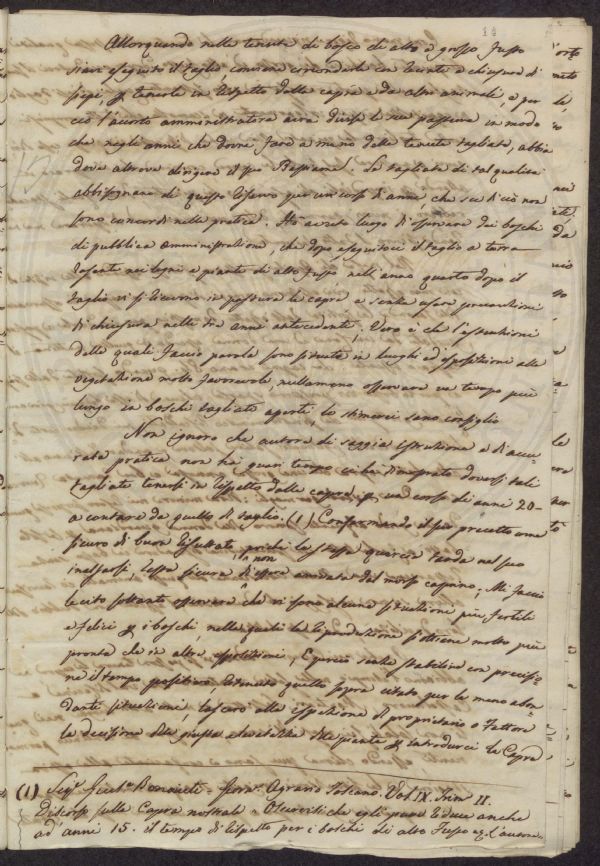 14
Allorquando nelle tenute di bosco di alto e grosso fusto
siasi eseguito il taglio conviene circondarle con trinte e chiusure di
siepi, p tenerle in rispetto dalle capre e da altri animali, e per
ciò l'accorto amministratore avrà divise le sue pasture in modo
che negli anni che dovrà fare a meno delle tenute tagliate, abbia
dove altrove dirigere il suo Bestiame. Le tagliate di tal qualità
abbisognano di questo riservo per un corso di anni, che su di ciò non
sono concordi nelle pratiche. Ho avuto luogo d'osservare dei boschi
di pubblica amministrazione, che dopo eseguitovi il taglio a terra
rasente nei legni e piante di alto fusto nell'anno quarto dopo il
taglio vi si ricevono in pastura le capre e senza avere precauzione
di chiusura nelli tre anni antecedenti; Vero è che l'estenzioni
delle quali faccio parola sono situate in luoghi ed esposizioni alla
vegetazione molto favorevoli, nullameno osservare un tempo più
lungo in boschi tagliati aperti, lo stimerei sano consiglio
Non ignoro che autore di saggia istruzione e di accu-
rata pratica non ha guari tempo ci ha dimostrato doversi tali
tagliate tenersi in rispetto dalle capre p un corso di anni 20-
a contare da quello di taglio. (1) Confermando il suo precetto come
sicuro di buon resultato, poichè la stessa quercia tarda nel suo
inalzarsi, resta sicura di non essere annodata dal morso caprino; Mi faccio
lecito soltanto osservare che vi sono alcune situazioni più fertili
e felici p i boschi, nelle quali la riproduzione si ottiene molto più
pronta che in altre esposizioni, E perciò senza stabilire con precisio-
ne il tempo positivo, ritenuto quello sopra citato per le meno abon-
danti situazioni, lascerò alla ispezione del proprietario o Fattore
la decisione della giusta elevatezza delle piante p introdurci la Capra
(1) Sigr. Agrario Toscano. Vol. IX. Trim. II.
Discorso sulla Capra nostrale - Avvertiti che egli pure riduce anche
ad anni 15. il tempo di rispetto per i boschi di alto Fusto